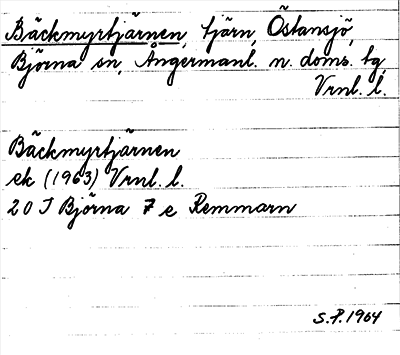 Bäckmyrtjärnen, tjärn, Östansjö,
Björna sn, Ångermanl. n. doms. tg,
Vrnl. l.
Bäckmyrtjärnen
ek (1963) Vrnl. l.
20 I Björna 7 e Remmarn
S.P. 1964